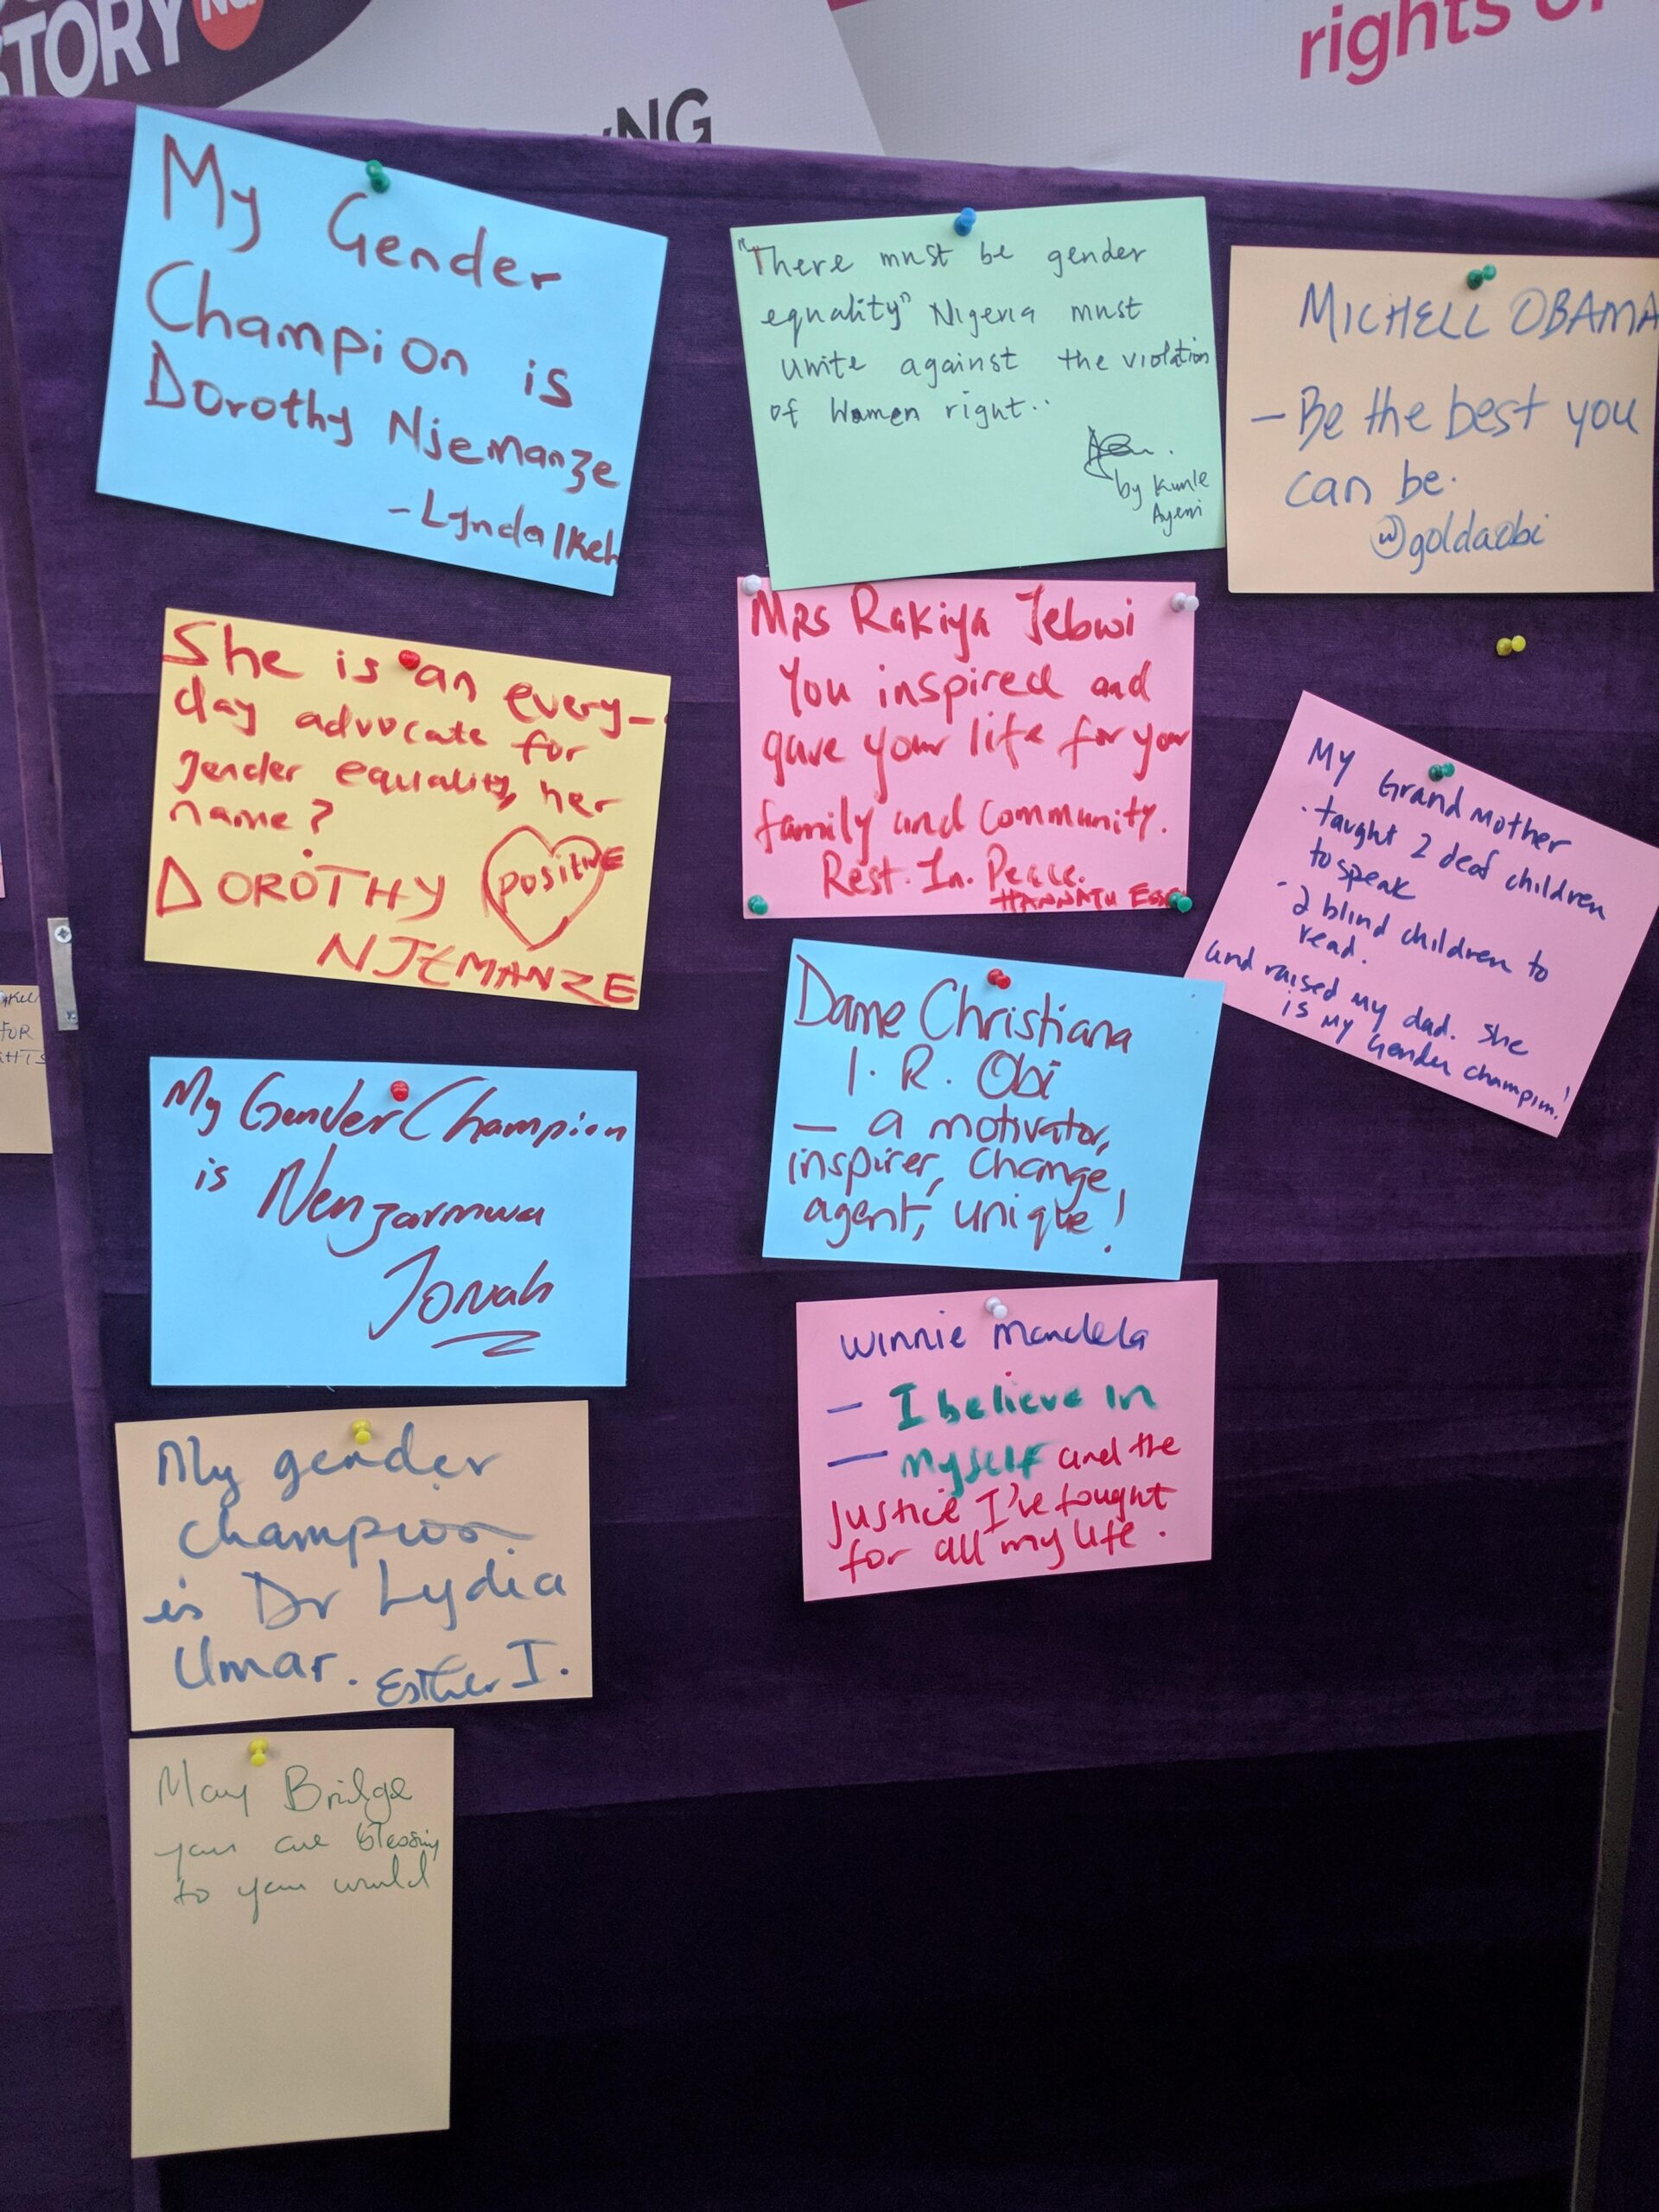 STORY
NG
NG
rights
My Gender
Champion is
Dorothy Njemanze
- Lynda Ikeh
She is an every-
day advocate for
gender equality, her
name?
DOROTHY positive
NJEMANZE
My Gender Champion
is Nenzarmwa
Jonah
My gender
champion
is Dr Lydia
Umar. Esther I.
May Bridge
you are blessing
to your world
"There must be gender
equality" Nigeria must
unite against the violation
of Women right..
by Kunle
Ayeni
Mrs Rakiya Jebwi
You inspired and
gave your life for your
family and Community.
Rest. In. Peace.
HANNATU
Dame Christiana
I. R. Obi
— a motivator,
inspirer, change
agent, unique!
Winnie Mandela
- I believe in
- myself and the
justice I've fought
for all my life.
MICHELL OBAMA
- Be the best you
can be.
@goldaobi
My Grand Mother
· taught 2 deaf children
to speak
- 2 blind children to
read.
and raised my dad. She
is my Gender champion!
FOR